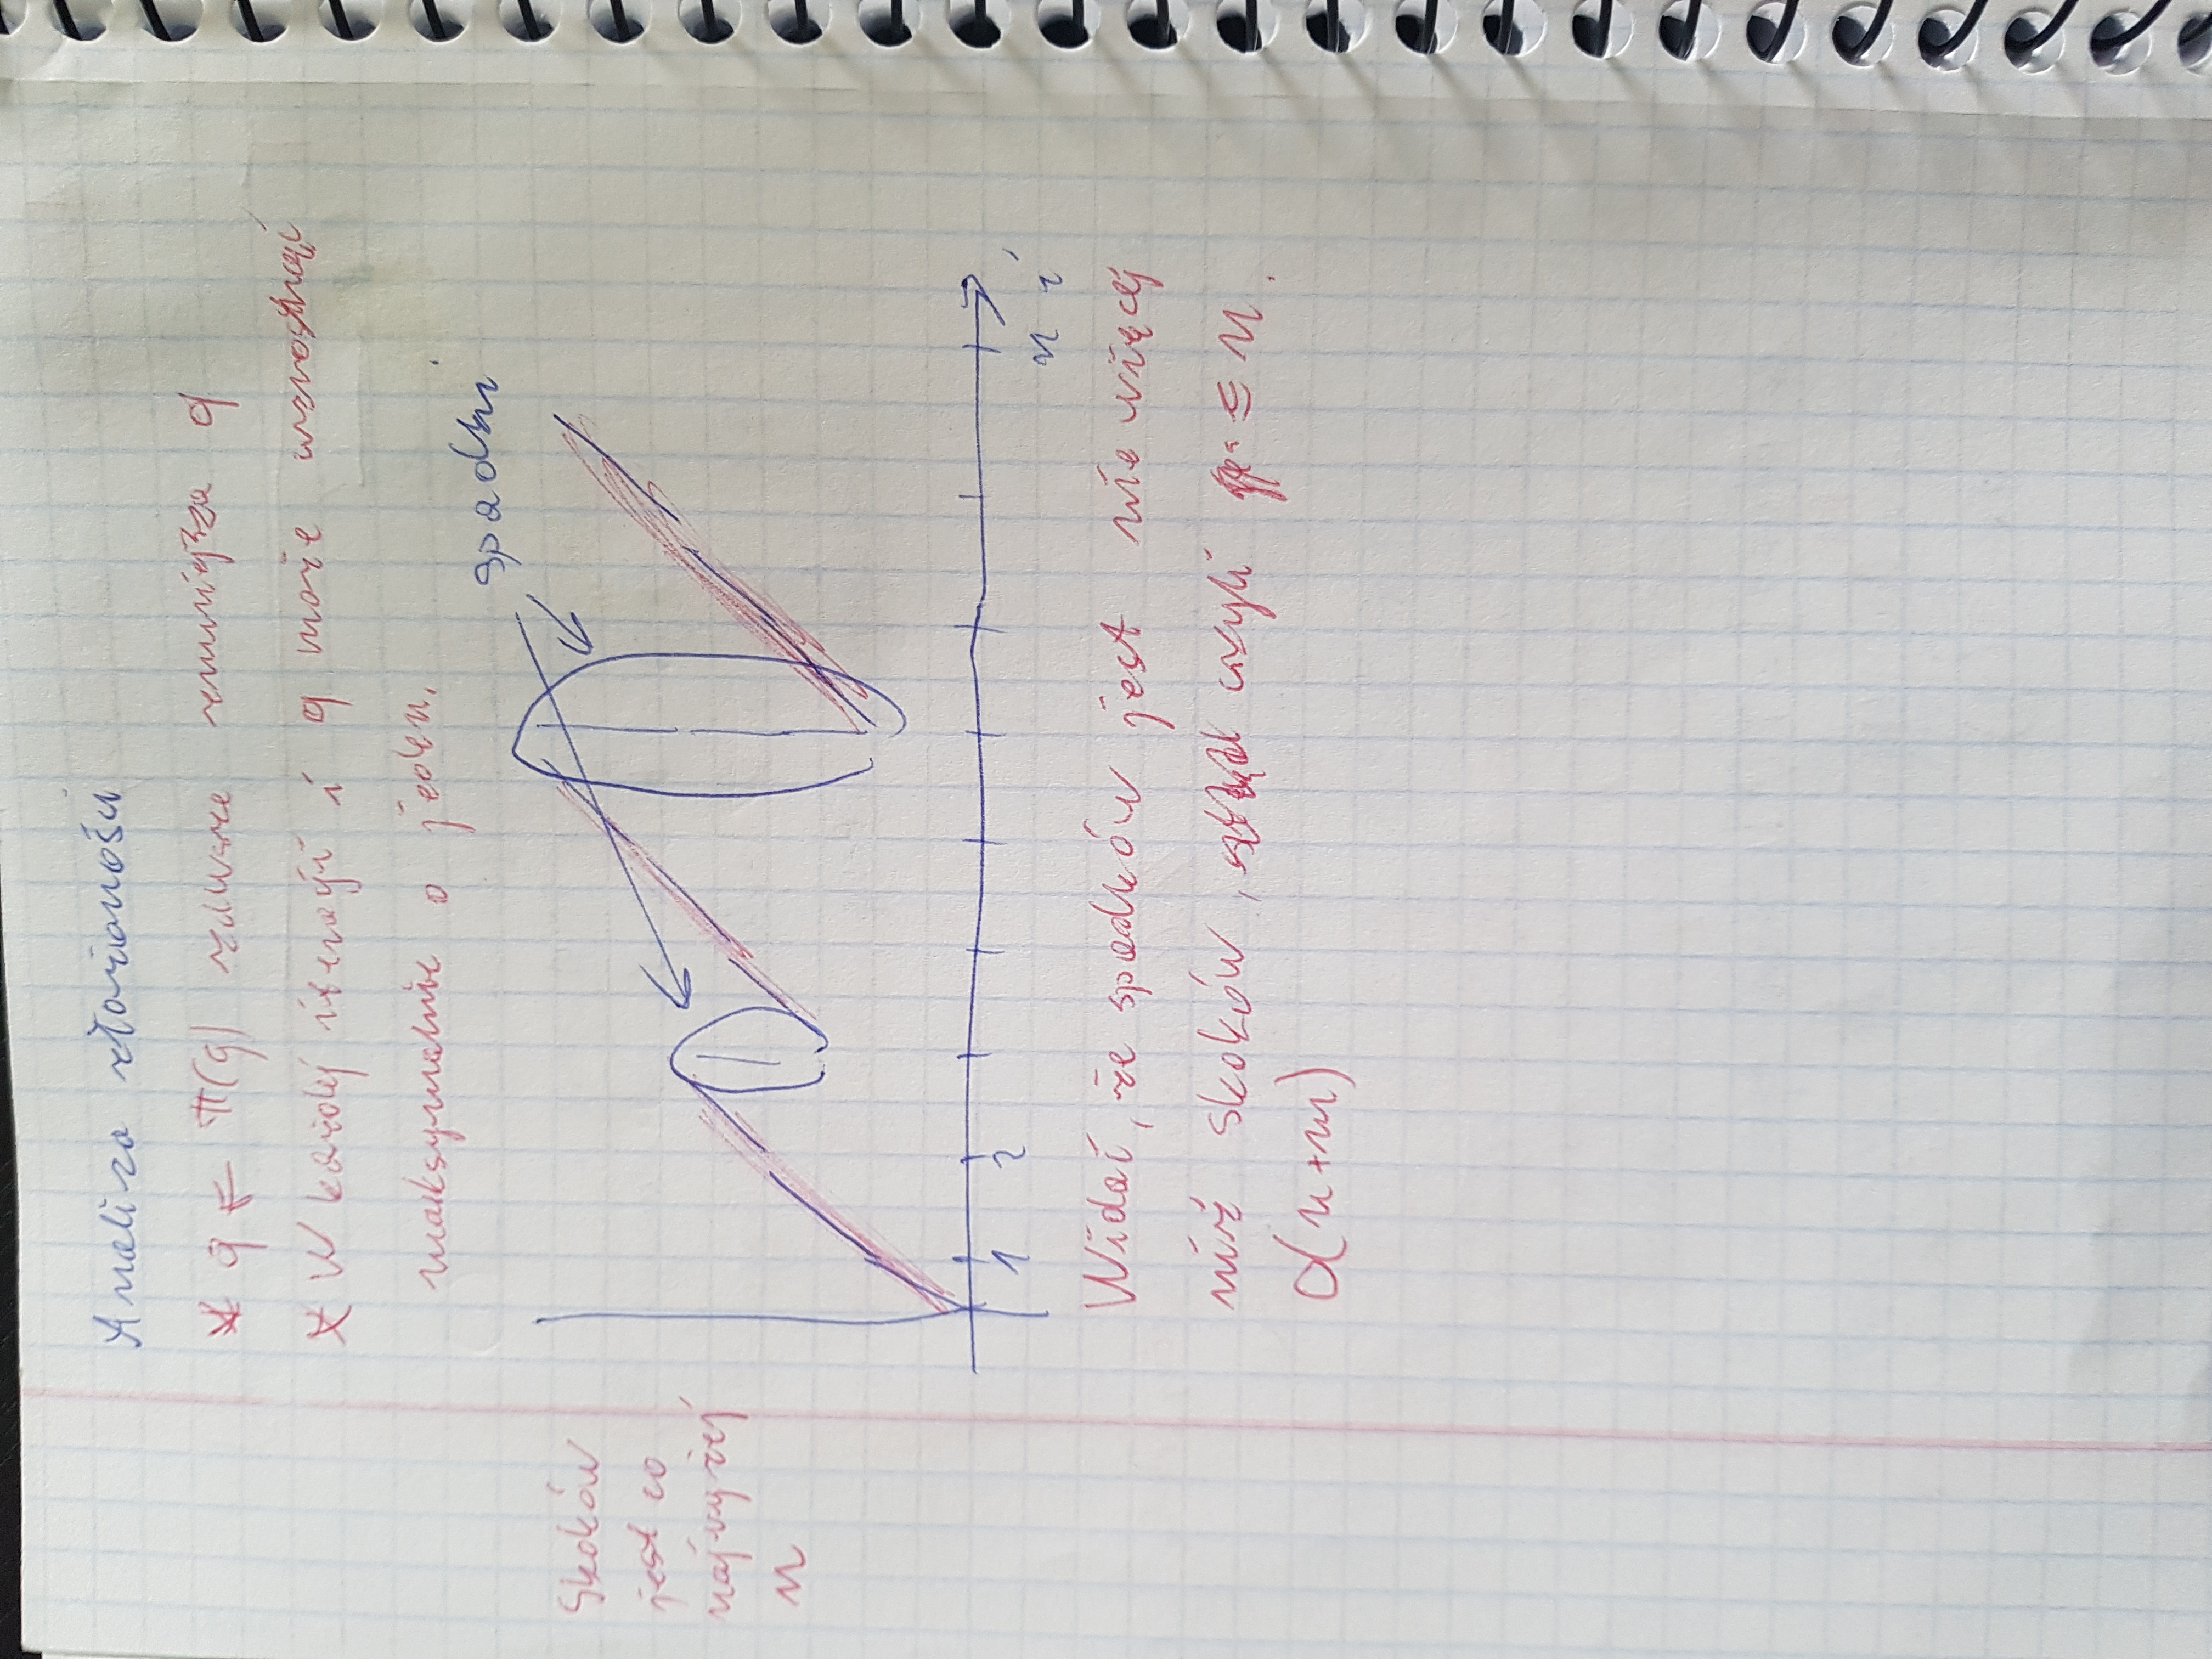 Analiza złożoności
* q ← π(q) zawsze zmniejsza q
* W każdej iteracji i q może wzrosnąć
maksymalnie o jeden.
spadki
Skoków
jest co
najwyżej
n
1 2 n i
Widać, że spadków jest nie więcej
niż skoków, czyli ≤ n.
O(n+m)